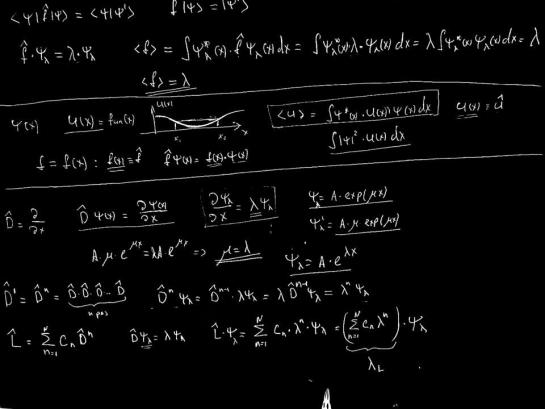 ⟨Ψ|f̂|Ψ⟩ = ⟨Ψ|Ψ'⟩   f̂|Ψ⟩ = |Ψ'⟩
f̂·Ψ_λ = λ·Ψ_λ   <f> = ∫Ψ_λ*(x)·f̂ Ψ_λ(x)dx = ∫Ψ_λ*(x)·λ·Ψ_λ(x)dx = λ∫Ψ_λ*(x)Ψ_λ(x)dx = λ
<f> = λ
Ψ(x)   U(x) = fun(x)   U(x)   x₁   x₂   x   <U> = ∫Ψ*(x)·U(x)Ψ(x)dx   U(x) = Û
∫|Ψ|²·U(x)dx
f = f(x) : f(x) = f̂   f̂Ψ(x) = f(x)·Ψ(x)
D̂ = ∂/∂x   D̂Ψ(x) = ∂Ψ(x)/∂x   ∂Ψ_λ/∂x = λΨ_λ   Ψ_λ = A·exp(μx)
Ψ_λ' = A·μ·exp(μx)
A·μ·e^{μx} = λA·e^{μx} => μ = λ   Ψ_λ = A·e^{λx}
D̂' = D̂ⁿ = D̂·D̂·D̂...D̂   D̂ⁿΨ_λ = D̂ⁿ⁻¹·λΨ_λ = λD̂ⁿ⁻¹Ψ_λ = λⁿΨ_λ
n раз
L̂ = ∑_{n=1}^{N} C_n D̂ⁿ   D̂Ψ_λ = λΨ_λ   L̂·Ψ_λ = ∑_{n=1}^{N} C_n·λⁿ·Ψ_λ = (∑_{n=1}^{N} C_n λⁿ)·Ψ_λ
λ_L